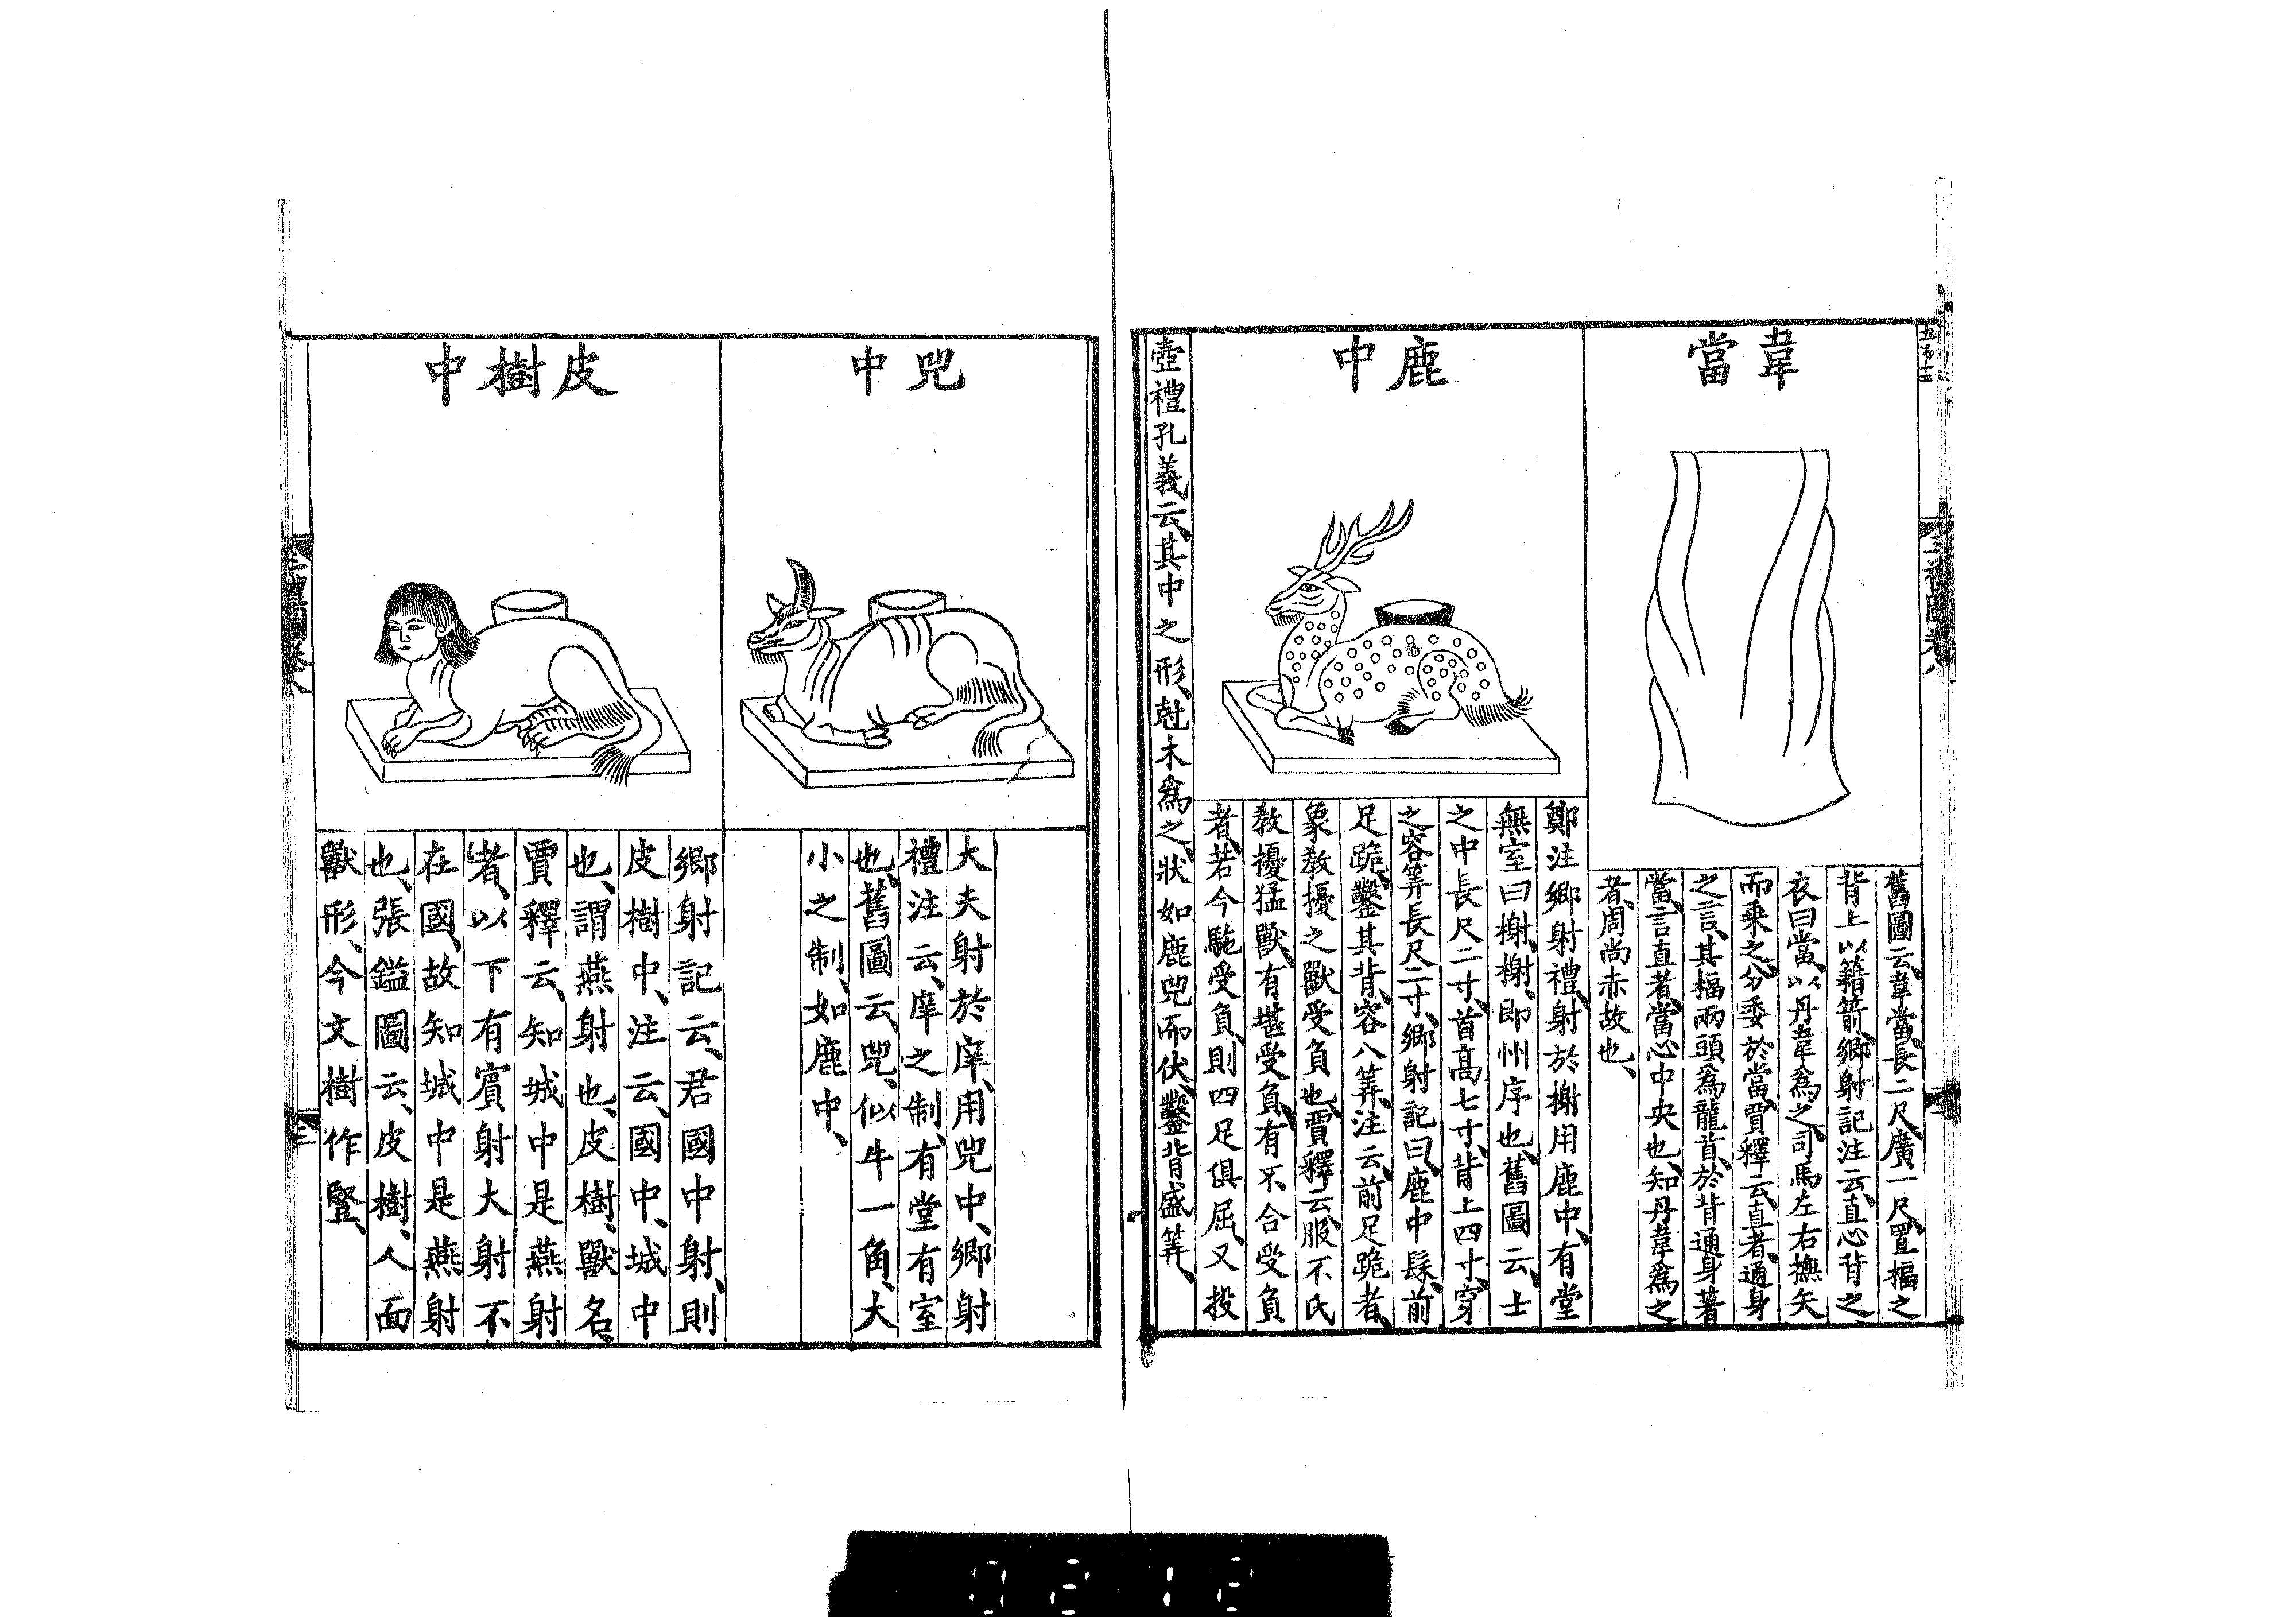 韋當
舊圖云、韋當、長二尺、廣一尺、置楅之
背上以籍箭、鄉射記注云、直心背之
衣曰當、以丹韋爲之、司馬左右撫矢
而乘之、分委於當、賈釋云、直者、通身
之言、其楅兩頭爲龍首、於背通身著
當、言直者、當心中央也、知丹韋爲之
者、周尚赤故也、
鹿中
鄭注鄉射禮、射於榭用鹿中、有堂
無室曰榭、榭、即州序也、舊圖云、士
之中長尺二寸、首高七寸、背上四寸、穿
之容筭長尺二寸、鄉射記曰、鹿中髹、前
足跪、鑿其背、容八筭、注云、前足跪者、
象敎擾之獸受負也、賈釋云、服不氏
敎擾猛獸、有堪受負、有不合受負
者、若今駞受負、則四足俱屈、又投
壺禮孔義云、其中之形、尅木爲之、狀如鹿兕而伏、鑿背盛筭、
兕中
大夫射於庠、用兕中、鄉射
禮注云、庠之制、有堂有室
也、舊圖云、兕、似牛一角、大
小之制、如鹿中、
皮樹中
鄉射記云、君國中射、則
皮樹中、注云、國中、城中
也、謂燕射也、皮樹、獸名、
賈釋云、知城中是燕射
者、以下有賓射大射不
在國、故知城中是燕射
也、張鎰圖云、皮樹、人面
獸形、今文樹作豎、
三禮圖卷八
三
0212